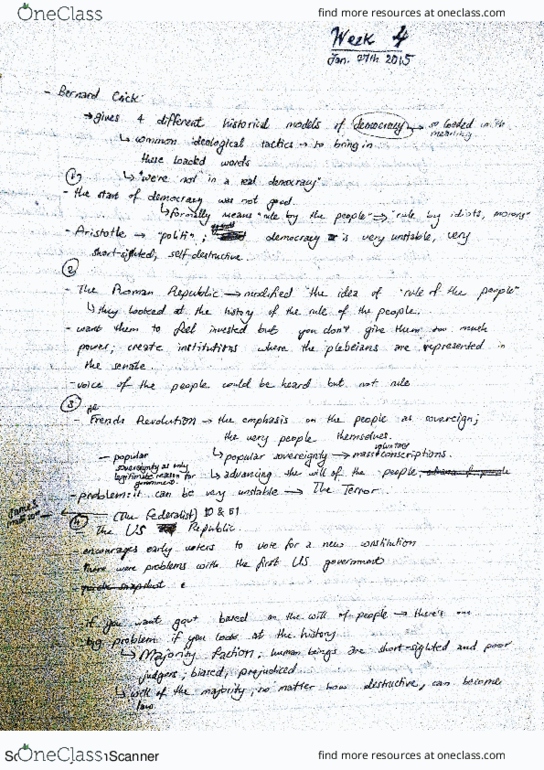 OneClass find more resources at oneclass.com
Week 4
Jan. 27th 2015
- Bernard Crick
→ gives 4 different historical models of democracy → so loaded with meaning
↳ common ideological tactics → to bring in
these loaded words
↳ "we're not in a real democracy"
①
- the start of democracy was not good.
↳ formally means "rule by the people" → "rule by idiots, morons"
- Aristotle → "politi"; democracy is very unstable, very
short-sighted, self-destructive
②
- The Roman Republic → modified the idea of "rule of the people"
↳ they looked at the history of the rule of the people.
- want them to feel invested but you don't give them too much
power; create institutions where the plebeians are represented in
the senate
- voice of the people could be heard but not rule
③
- French Revolution → the emphasis on the people as sovereign;
the very people themselves.
↳ popular sovereignty → mass conscriptions.
voluntary
- popular sovereignty as only legitimate reason for government.
↳ advancing the will of the people
- problem: it can be very unstable → The Terror
James
④ (The Federalist) 10 & 51
- The US Republic
encourages early voters to vote for a new constitution
there were problems with the first US government
if you want gov't based on the will of people → there's one
big problem if you look at the history
↳ Majority faction; human beings are short-sighted and poor
judgers; biased, prejudiced
↳ will of the majority, no matter how destructive, can become
law
OneClass Scanner find more resources at oneclass.com